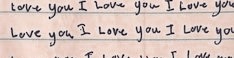 love you I Love you I Love you
Love you I Love you I Love you
I Love you I Love